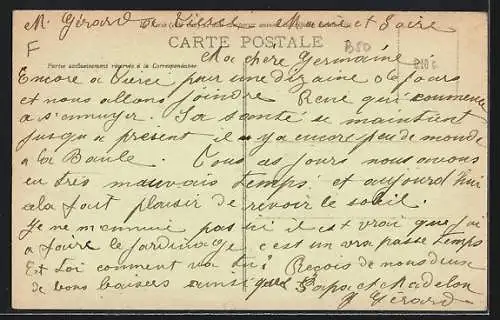 M. Gérard de Maine et Loire
F
CARTE POSTALE
B50
Partie exclusivement réservée à la Correspondance.
Ma chère Germaine
Encore à pour une dizaine de jours
et nous allons joindre René qui commence
à s'ennuyer. Sa santé se maintient
jusqu'à présent il y a encore peu de monde
à la Baule. Tous ces jours nous avons
eu très mauvais temps et aujourd'hui
cela fait plaisir de revoir le soleil.
Je ne m'ennuie pas ici il est vrai que j'ai
à faire le jardinage c'est un vrai passe temps
Et toi comment va tu? Reçois de nous deux
de bons baisers ainsi que Papa et Madelon
Gérard